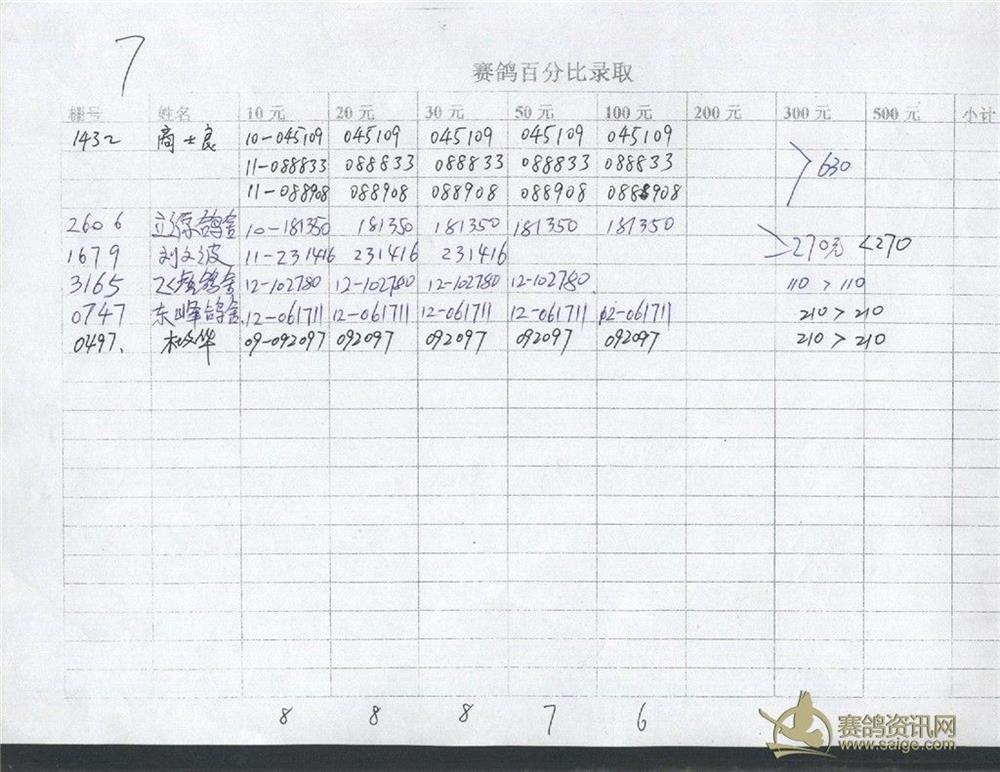 7
赛鸽百分比录取
棚号 姓名 10元 20元 30元 50元 100元 200元 300元 500元 小计
1432 商士良 10-045109 045109 045109 045109 045109
11-088833 088833 088833 088833 088833
630
11-088908 088908 088908 088908 088908
2606 立源鸽舍 10-181350 181350 181350 181350 181350
270元 <270
1679 刘文波 11-231416 231416 231416
3165 鸽舍 12-102780 12-102780 12-102780 12-102780 110 > 110
0747 东峰鸽舍 12-061711 12-061711 12-061711 12-061711 12-061711 210 > 210
0497. 09-092097 092097 092097 092097 092097 210 > 210
8 8 8 7 6
赛鸽资讯网
www.saige.com